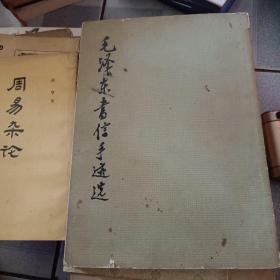 毛泽东书信手迹选
周易杂论